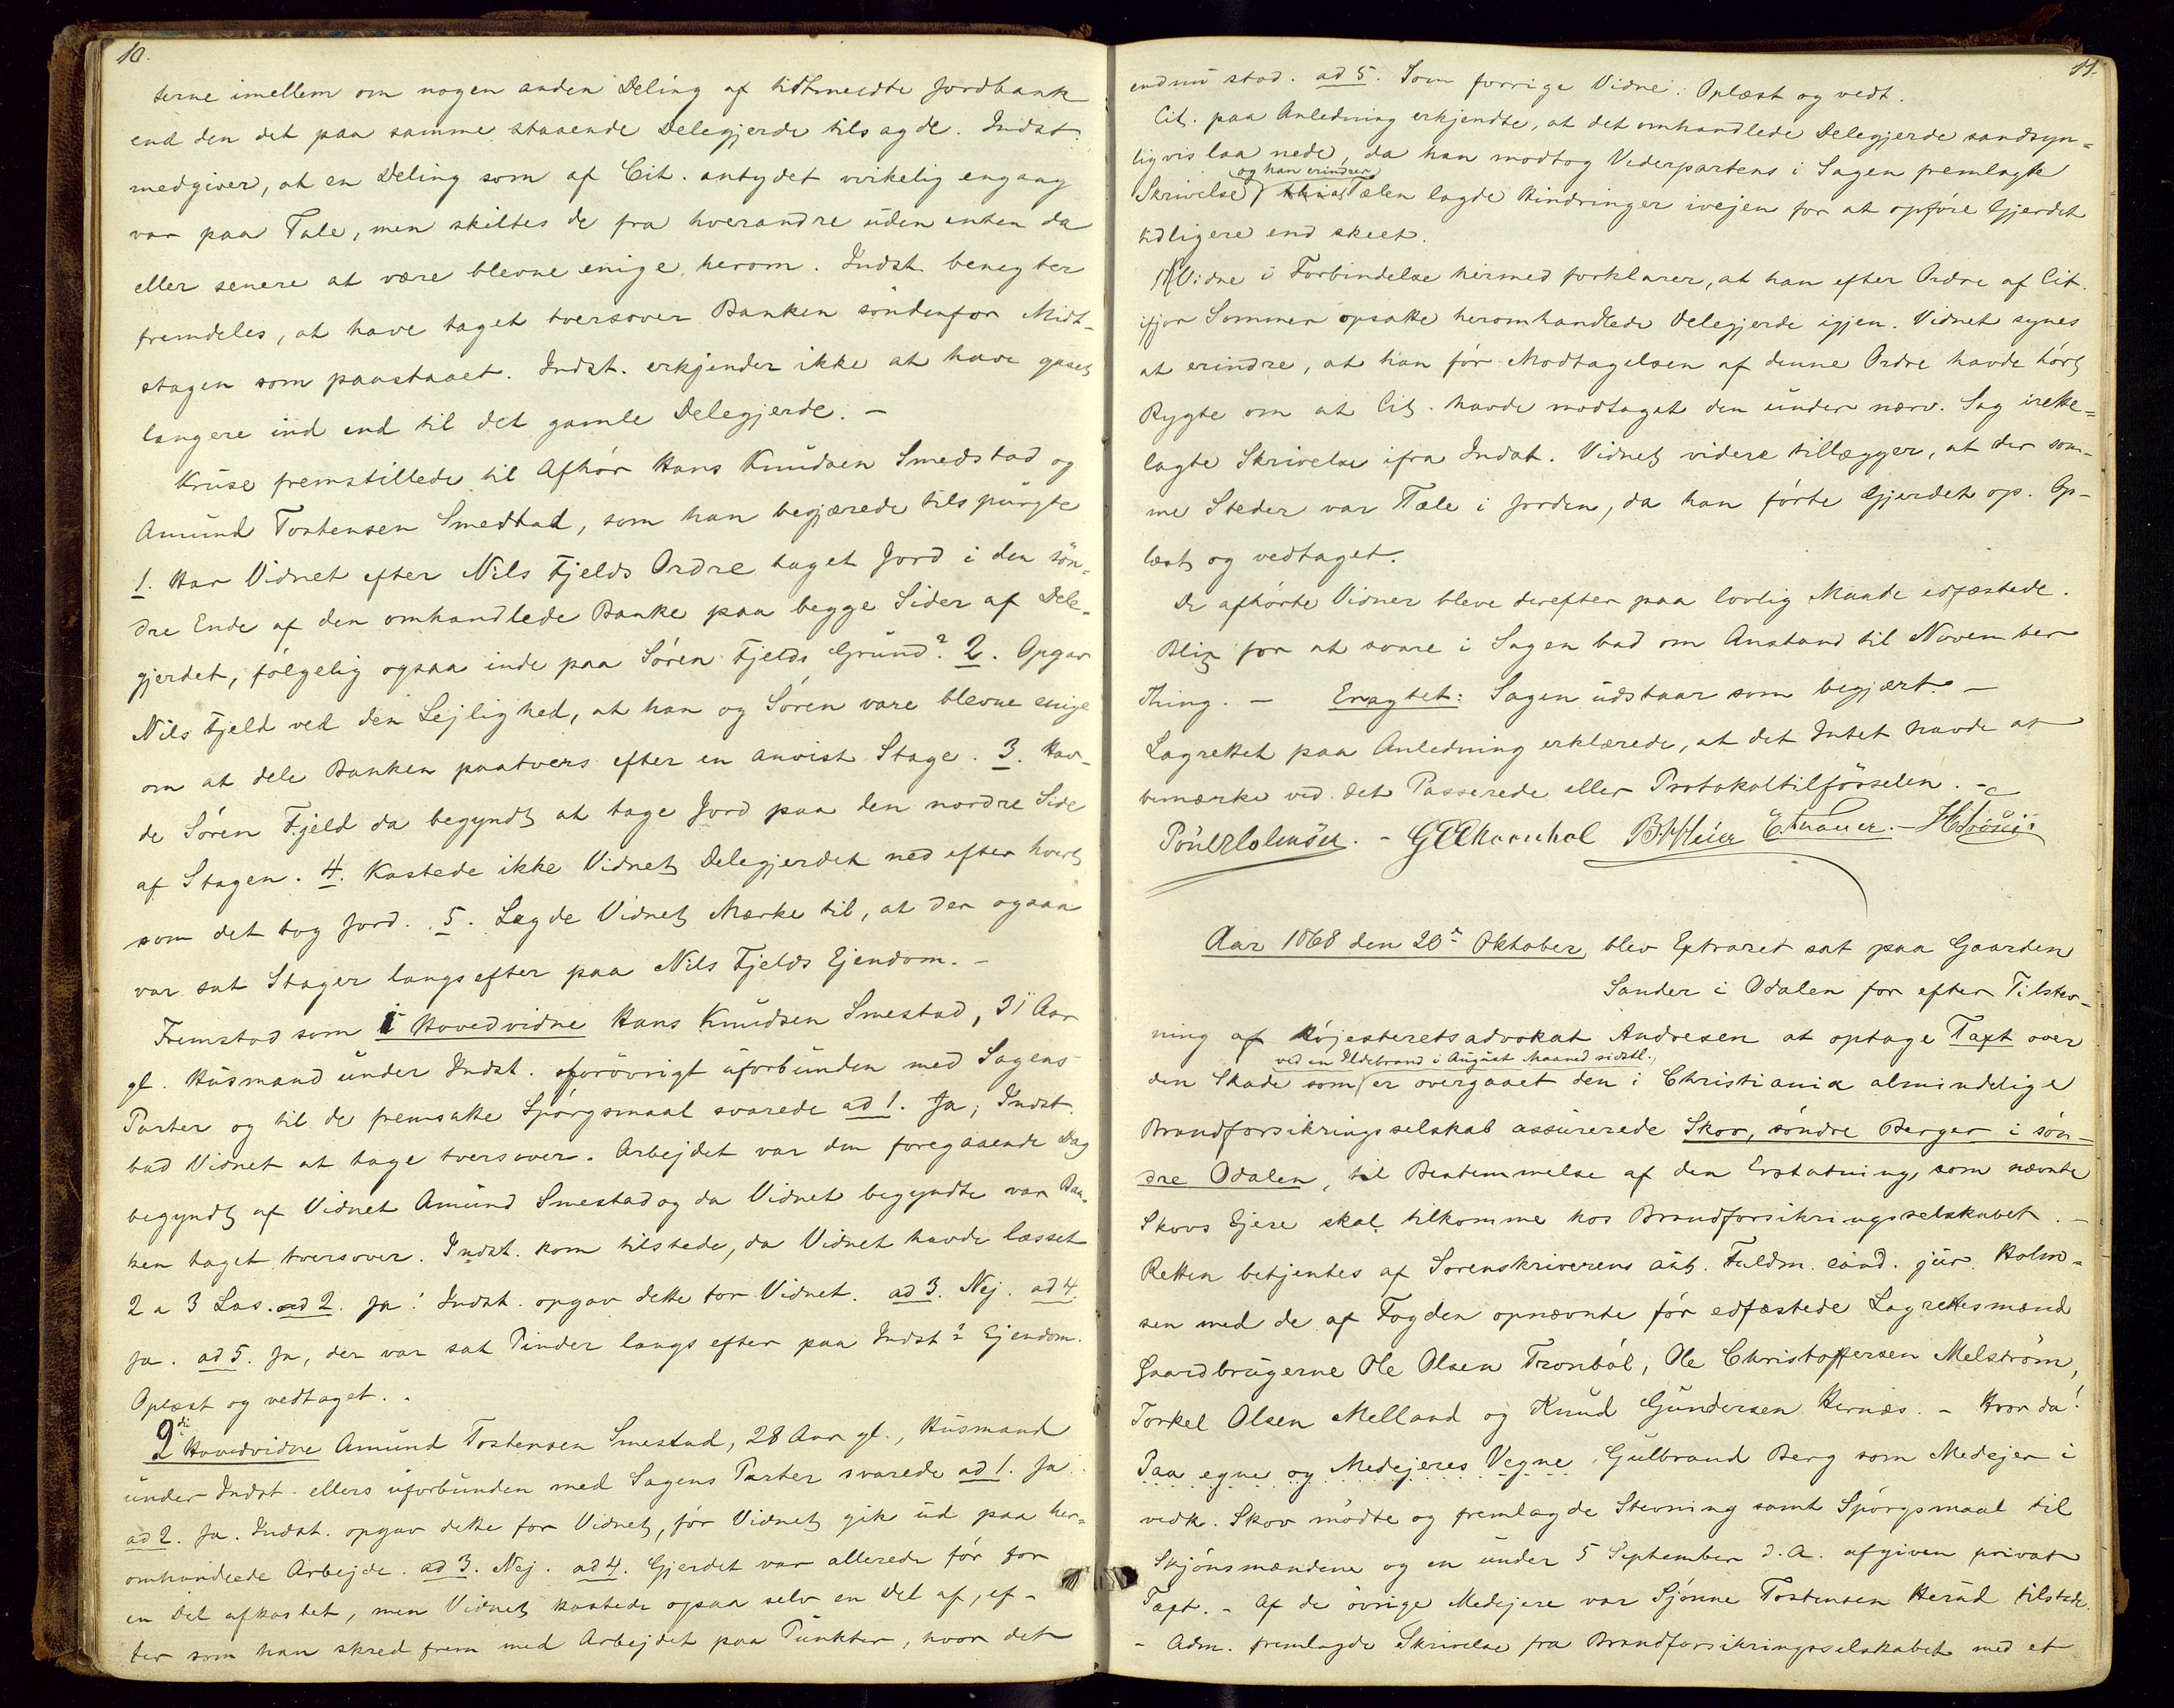 10.
terne imellem om nogen anden Deling af tidtmeldte Jordbank
end den det paa samme staaende Delegjerde tilsagde. Indst.
medgiver, at en Deling som af Cit. antydet virkelig engang
var paa Tale, men skiltes de fra hverandre uden enten da
eller senere at være blevne enige herom. Indst. benegter
fremdeles, at have taget tversover Banken søndenfor Midt-
stagen som paastaaet. Indst. erkjender ikke at have gaaet
længere ind end til det gamle Delegjerde. -
Kruse fremstillede til Afhør Hans Knudsen Smedstad og
Amund Tostensen Smedstad, som han begjærede tilspurgte
1. Har Vidnet efter Nils Fjelds Ordre taget Jord i den søn-
dre Ende af den omhandlede Banke paa begge Sider af Dele-
gjerdet, følgelig ogsaa inde paa Søren Fjelds Grund? 2. Opgav
Nils Fjeld ved den Lejlighed, at han og Søren vare blevne enige
om at dele Banken paatvers efter en anvist Stage. 3. Hav-
de Søren Fjeld da begyndt at tage Jord paa den nordre Side
af Stagen. 4. Kastede ikke Vidnet Delegjerdet ned efter hvert
som det tog Jord. 5. Lagde Vidnet Mærke til, at der ogsaa
var sat Stager langsefter paa Nils Fjelds Ejendom. -
Fremstod som 1 Hovedvidne Hans Knudsen Smestad, 31 Aar
gl. Husmand under Indst. forøvrigt uforbunden med Sagens
Parter og til de fremsatte Spørgsmaal svarede ad 1. Ja; Indst.
bad Vidnet at tage tversover. Arbejdet var den foregaaende Dag
begyndt af Vidnet Amund Smestad og da Vidnet begyndte var Ban-
ken taget tversover. Indst. kom tilstede, da Vidnet havde læsset
2 a 3 Las. ad 2. Ja! Indst. opgav dette for Vidnet. ad 3. Nej. ad 4.
Ja. ad 5. Ja, der var sat Pinder langs efter paa Indst.s Ejendom.
Oplæst og vedtaget. -
2det Hovedvidne Amund Tostensen Smestad, 28 Aar gl., Husmand
under Indst. ellers uforbunden med Sagens Parter svarede ad 1. Ja.
ad 2. Ja. Indst. opgav dette for Vidnet, før Vidnet gik ud paa her-
omhandlede Arbejde. ad 3. Nej. ad 4. Gjerdet var allerede før for
en Del afkastet, men Vidnet kastede ogsaa selv en Del af, ef-
ter som han skred frem med Arbejdet paa Punkter, hvor det
11.
endnu stod. ad 5. Som forrige Vidne. Oplæst og vedt.
Cit. paa Anledning erkjendte, at det omhandlede Delegjerde sandsyn-
ligvis laa nede, da han modtog Vederpartens i Sagen fremlagte
og han erindrer
Skrivelse, Tælen lagde Hindringer ivejen for at opføre Gjerdet
tidligere end skeet.
1st Vidne i Forbindelse hermed forklarer, at han efter Ordre af Cit.
ifjor Sommer opsatte heromhandlede Delegjerde igjen. Vidnet synes
at erindre, at han før Modtagelsen af denne Ordre havde hørt
Rygte om at Cit. havde modtaget den under nærv. Sag irette-
lagte Skrivelse ifra Indst. Vidnet videre tillægger, at der som-
me Steder var Tæle i Jorden, da han førte Gjerdet op. Op-
læst og vedtaget.
De afhørte Vidner bleve derefter paa lovlig Maade edfæstede.
Blix for at svare i Sagen bad om Anstand til November
Thing. - Eragtet: Sagen udstaar som begjært. -
Lagrettet paa Anledning erklærede, at det Intet havde at
bemærke ved det Passerede eller Protokoltilførselen. -
Aar 1868 den 20de Oktober blev Extraret sat paa Gaarden
Sander i Odalen for efter Tilstev-
ning af Højesteretsadvokat Andresen at optage Taxt over
ved en Ildebrand i August Maaned sidstl.
den Skade som er overgaaet den i Christiania almindelige
Brandforsikringsselskab assurerede Skov, søndre Berger i søn-
dre Odalen, til Bestemmelse af den Erstatning, som nævnte
Skovs Ejere skal tilkomme hos Brandforsikringsselskabet. -
Retten betjentes af Sorenskriverens aut. Fuldm. cand. jur. Holm-
sen med de af Fogden opnævnte før edfæstede Lagrettesmænd
Gaardbrugerne Ole Olsen Tronbøl, Ole Christoffersen Melstrøm,
Torkel Olsen Melland og Knud Gundersen Hernæs. - Hvor da!
Paa egne og Medejeres Vegne Gulbrand Berg som Medejer i
vedk. Skov mødte og fremlagde Stevning samt Spørgsmaal til
Skjønsmændene og en under 5 September d. A. afgiven privat
Taxt. - Af de øvrige Medejere var Sjønne Tostensen Herud tilstede.
- Adm. fremlagde Skrivelse fra Brandforsikringsselskabet med et